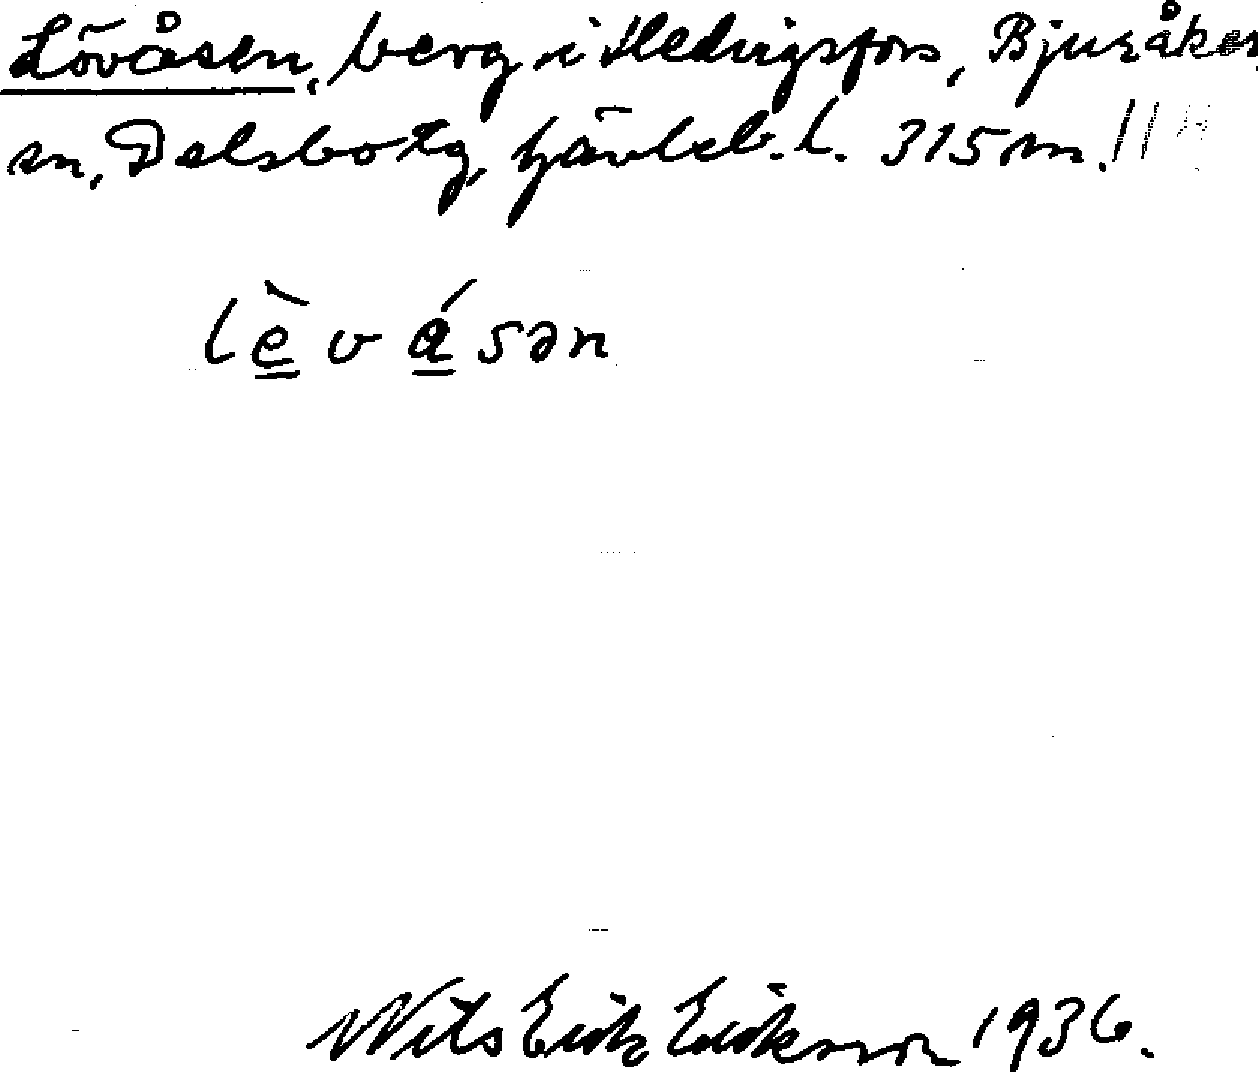 Lövåsen, berg i Hedvigsfors, Bjuråker
sn, Delsbo tg, Gävleb. l. 315 m.
lèvásən
Nils Erik Eriksson 1936.